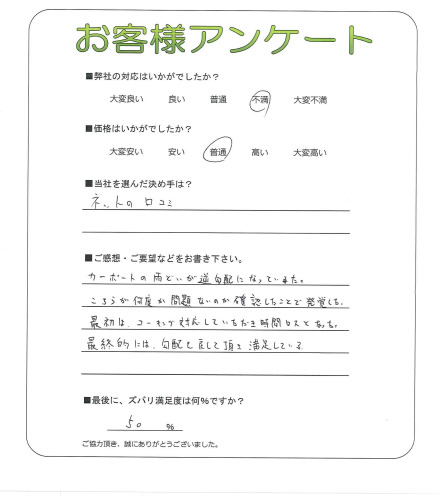 お客様アンケート
■弊社の対応はいかがでしたか？
大変良い 良い 普通 不満 大変不満
■価格はいかがでしたか？
大変安い 安い 普通 高い 大変高い
■当社を選んだ決め手は？
ネットの口コミ
■ご感想・ご要望などをお書き下さい。
カーポートの雨どいが逆勾配になっていました。
こちらが何度か問題ないのか確認したことで発覚した。
最初は、コーキング対応していただき時間ロスとなった。
最終的には、勾配を直して頂き満足している
■最後に、ズバリ満足度は何％ですか？
50 ％
ご協力頂き、誠にありがとうございました。